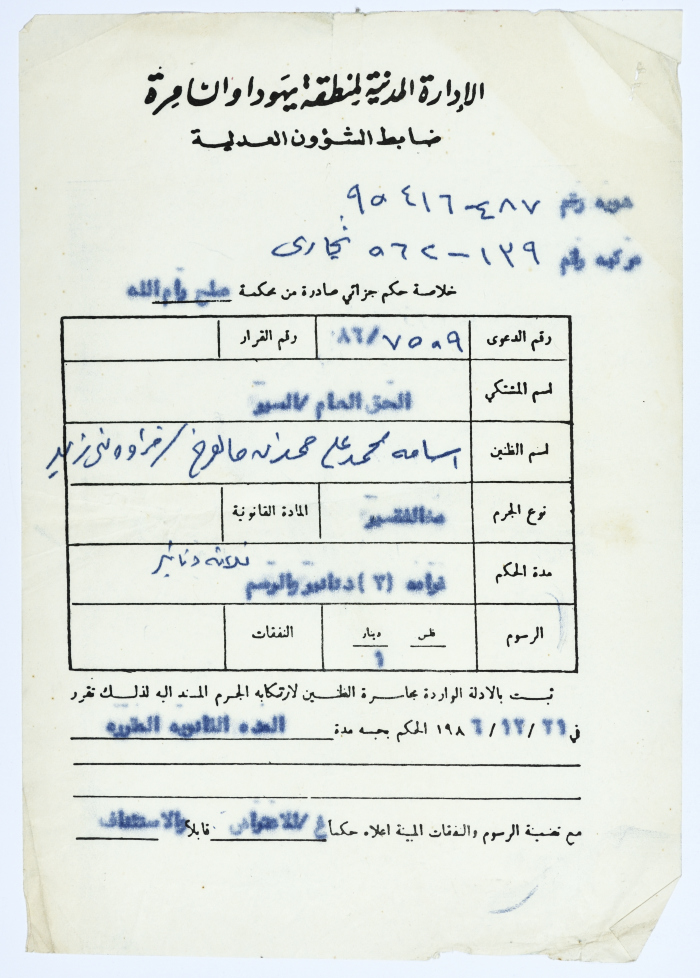 الإدارة المدنية لمنطقة يهودا والسامرة
ضابط الشؤون العدلية
هوية رقم ٤٨٧-٩٥٤١٦
مركبة رقم ١٣٩-٥٦٢ تجاري
خلاصة حكم جزائي صادرة من محكمة صلح رام الله
رقم الدعوى ٧٥٠٩/٨٦ رقم القرار
اسم المشتكي الحق العام /السير
اسم الظنين اسامه محمد علي حمدان /قراوه بني زيد
نوع الجرم المادة القانونية
ثلاثة دنانير
مدة الحكم غرامه (٣) دنانير والرسم
الرسوم فلس دينار النفقات
١
ثبت بالادلة الواردة بحاسرة الظنين لارتكابه الجرم المسند اليه لذلك تقرر
في ٢١/١٢/١٩٨٦ الحكم بحبسه مدة المده القانونيه المقرره
مع تضمينة الرسوم والنفقات المبينة اعلاه حكماً غ/للاعتراض قابلاً والاستئناف